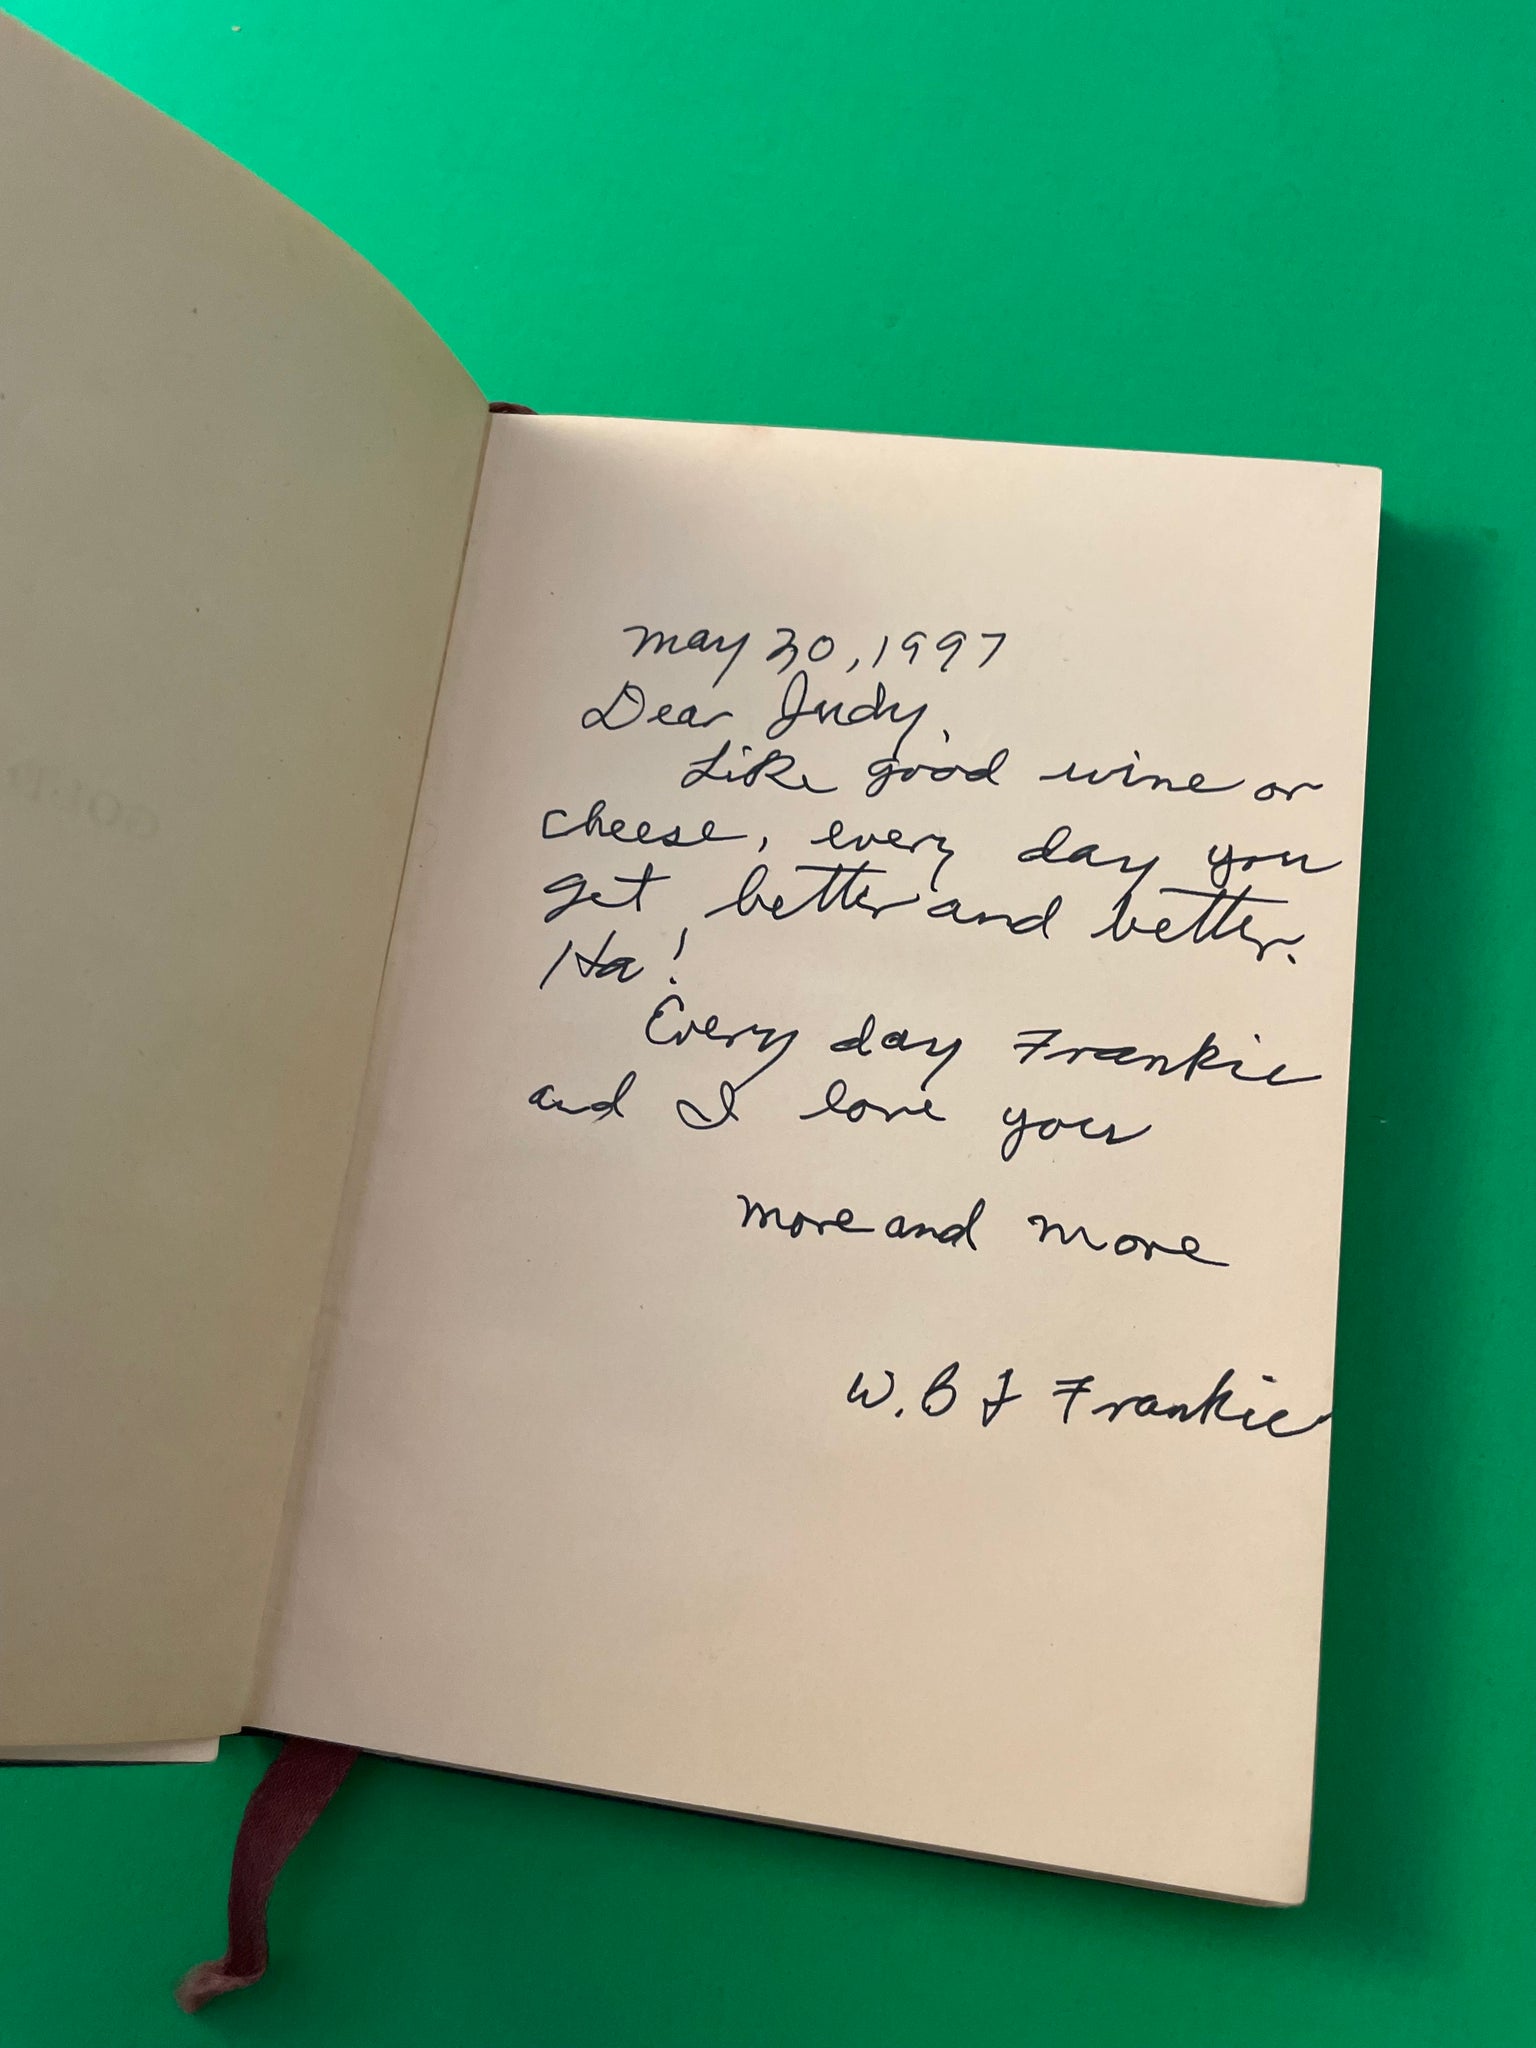 May 30, 1997
Dear Judy,
Like good wine or
cheese, every day you
get better and better.
Ha!
Every day Frankie
and I love you
more and more
W. B & Frankie